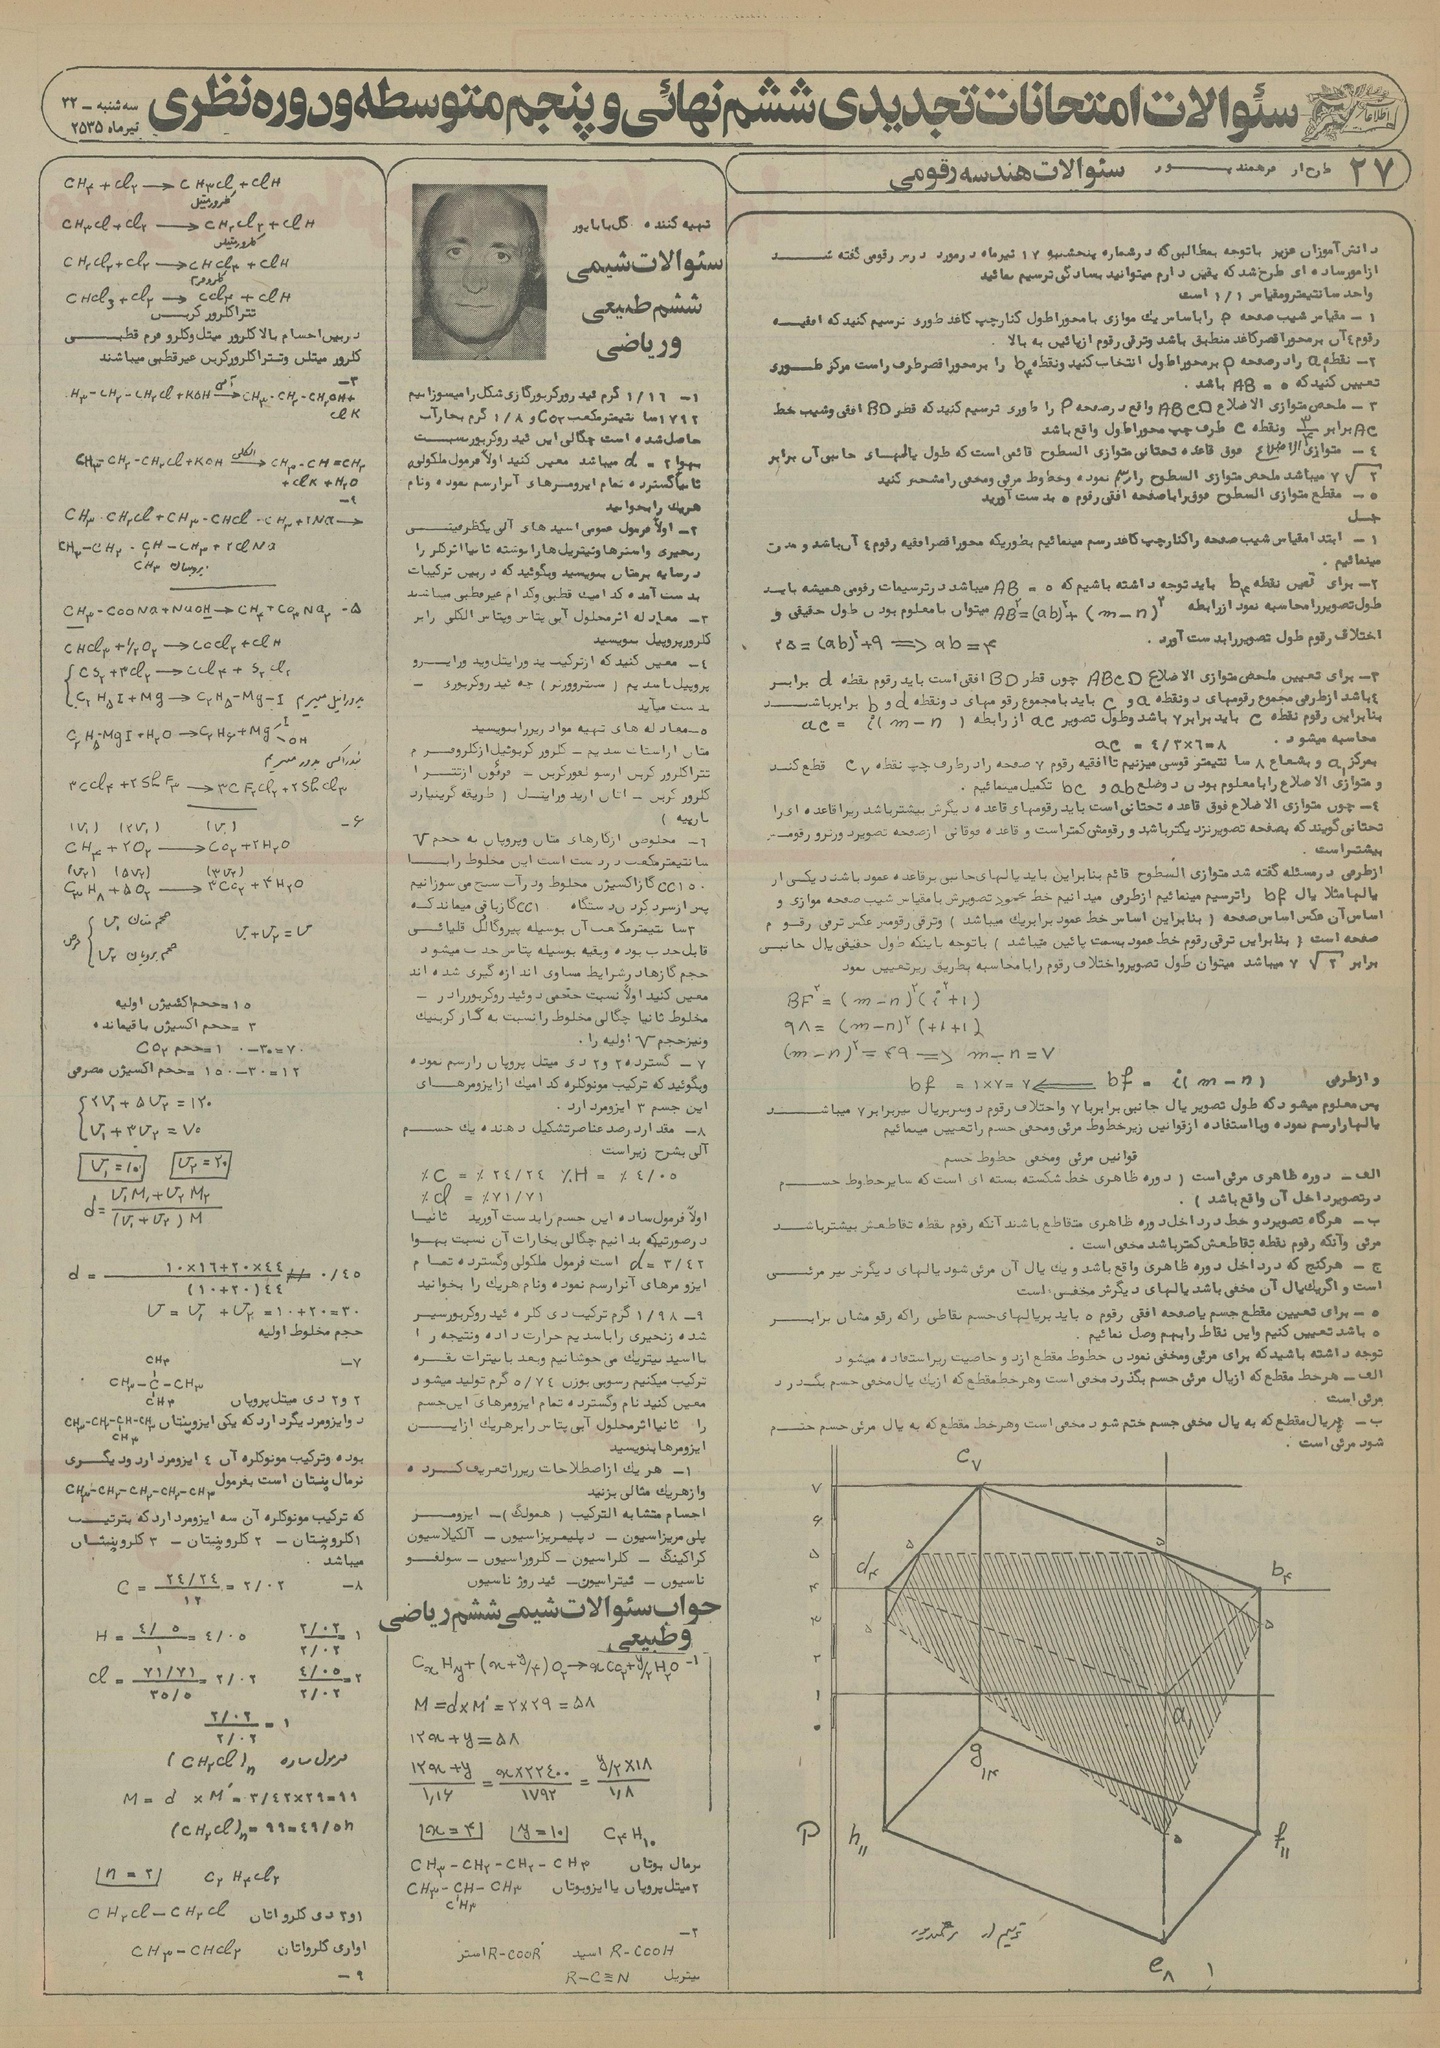 سئوالات امتحانات تجدیدی ششم نهائی و پنجم متوسطه و دوره نظری
سه شنبه - ۲۲
تیرماه ۲۵۳۵
اطلاعات
۲۷
سئوالات هندسه رقومی
دانش آموزان عزیز باتوجه بمطالبی که در شماره پنجشنبه ۱۷ تیرماه در مورد درس رقومی گفته شد
از امور ساده ای طرح شد که یقین دارم میتوانید بسادگی ترسیم نمائید
واحد سانتیمتر و مقیاس ۱/۱ است
۱- مقیاس شیب صفحه P را باساس یک موازی با محور اطول کنار چپ کاغذ طوری ترسیم کنید که افقیه
رقوم ٤ آن بر محور اقصر کاغذ منطبق باشد و ترقی رقوم از پائین به بالا .
۲- نقطه a₁ را در صفحه P بر محور اطول انتخاب کنید و نقطه b₄ را بر محور اقصر طرف راست مرکز طوری
تعیین کنید که AB = ۵ باشد .
۳- ملخص متوازی الاضلاع ABCD واقع در صفحه P را طوری ترسیم کنید که قطر BD افقی و شیب خط
AC برابر ۳/۴ و نقطه C طرف چپ محور اطول واقع باشد
٤- متوازی الاضلاع فوق قاعده تحتانی متوازی السطوح قائمی است که طول یالهای جانبی آن برابر
۷√۲ میباشد ملخص متوازی السطوح را رسم نموده و خطوط مرئی و مخفی را مشخص کنید
۵- مقطع متوازی السطوح فوق را با صفحه افقی رقوم ۵ بدست آورید
حل
۱- ابتدا مقیاس شیب صفحه را کنار چپ کاغذ رسم مینمائیم بطوریکه محور اقصر افقیه رقوم ٤ آن باشد و مدرت
مینمائیم .
۲- برای تعیین نقطه b₄ باید توجه داشته باشیم که AB = ۵ میباشد در ترسیمات رقومی همیشه باید
طول تصویر را محاسبه نمود از رابطه AB²=(ab)²+(m-n)² میتوان با معلوم بودن طول حقیقی و
اختلاف رقوم طول تصویر را بدست آورد . ۲۵=(ab)²+۹ => ab=۴
۳- برای تعیین ملخص متوازی الاضلاع ABCD چون قطر BD افقی است باید رقوم نقطه d برابر
٤ باشد از طرفی مجموع رقومهای دو نقطه a و c باید با مجموع رقومهای دو نقطه d و b برابر باشد
بنابراین رقوم نقطه C باید برابر ۷ باشد و طول تصویر ac از رابطه ac = i(m-n)
محاسبه میشود . ac = ٤/۳×٦=۸
بمرکز a₁ و بشعاع ۸ سانتیمتر قوسی میزنیم تا افقیه رقوم ۷ صفحه را در طرف چپ نقطه C₇ قطع کند
و متوازی الاضلاع را با معلوم بودن دو ضلع ab و bc تکمیل مینمائیم .
٤- چون متوازی الاضلاع فوق قاعده تحتانی است باید رقومهای قاعده دیگرش بیشتر باشد زیرا قاعده ای را
تحتانی گویند که بصفحه تصویر نزدیکتر باشد و رقومش کمتر است و قاعده فوقانی از صفحه تصویر دورتر و رقومش
بیشتر است .
از طرفی در مسئله گفته شد متوازی السطوح قائم بنابراین باید یالهای جانبی بر قاعده عمود باشد دیکی از
یالها مثلا یال bf را ترسیم مینمائیم از طرفی میدانیم خط عمود تصویرش با مقیاس شیب صفحه موازی و
اساس آن عکس اساس صفحه ( بنابراین اساس خط عمود برابر یک میباشد ) و ترقی رقومش عکس ترقی رقوم
صفحه است ( بنابراین ترقی رقوم خط عمود بسمت پائین میباشد ) باتوجه باینکه طول حقیقی یال جانبی
برابر ۷√۲ میباشد میتوان طول تصویر و اختلاف رقوم را با محاسبه بطریق زیر تعیین نمود
BF²=(m-n)²(i²+1)
۹۸=(m-n)²(+۱+۱)
(m-n)²=۴۹ => m-n=۷
و از طرفی bf = i(m-n) => bf = ۱×۷=۷
پس معلوم میشود که طول تصویر یال جانبی برابر با ۷ و اختلاف رقوم دوسر یال نیز برابر ۷ میباشد
یالها را رسم نموده و با استفاده از قوانین زیر خطوط مرئی و مخفی جسم را تعیین مینمائیم
قوانین مرئی و مخفی خطوط جسم
الف- دوره ظاهری مرئی است ( دوره ظاهری خط شکسته بسته ای است که سایر خطوط جسم
در تصویر داخل آن واقع باشد ) .
ب- هرگاه تصویر دو خط در داخل دوره ظاهری متقاطع باشند آنکه رقوم نقطه تقاطعش بیشتر باشد
مرئی و آنکه رقوم نقطه تقاطعش کمتر باشد مخفی است .
ج- هر کنج که در داخل دوره ظاهری واقع باشد و یک یال آن مرئی شود یالهای دیگرش نیز مرئی
است و اگر یک یال آن مخفی باشد یالهای دیگرش مخفی است
۵- برای تعیین مقطع جسم با صفحه افقی رقوم ۵ باید بر یالهای جسم نقاطی را که رقومشان برابر
۵ باشد تعیین کنیم و این نقاط را بهم وصل نمائیم .
توجه داشته باشید که برای مرئی و مخفی نمودن خطوط مقطع از دو خاصیت زیر استفاده میشود
الف- هر خط مقطع که از یال مرئی جسم بگذرد مخفی است و هر خط مقطع که از یک یال مخفی جسم بگذرد
مرئی است .
ب- هر یال مقطع که به یال مخفی جسم ختم شود مخفی است و هر خط مقطع که به یال مرئی جسم ختم
شود مرئی است .
C۷
۷
۶
۵
d۴
۴
b۴
۳
۲
۱
a۱
۰
g۱۴
P
h۱۱
f۱۱
e۸
تهیه کننده گل باباپور
سئوالات شیمی
ششم طبیعی
و ریاضی
۱- ۱/۱٦ گرم ئیدروکربور گازی شکل را میسوزانیم
۱۷۹۲ سانتیمتر مکعب CO۲ و ۱/۸ گرم بخار آب
حاصل شده است چگالی این ئیدروکربور نسبت
بهوا d = ۲ میباشد معین کنید اولاً فرمول ملکولی
ثانیا گسترده تمام ایزومرهای آنرا رسم نموده و نام
هریک را بخوانید
۲- اولاً فرمول عمومی اسیدهای آلی یک ظرفیتی
زنجیری و استرها و نیتریل ها را نوشته ثانیا اثر کلر را
در سایه بر متان بنویسید و بگوئید که در بین ترکیبات
بدست آمده کدامیک قطبی و کدام غیر قطبی میباشد
۳- معادله اثر محلول آبی پتاس و پتاس الکلی را بر
کلرور پروپیل بنویسید
٤- معین کنید که از ترکیب یدور اتیل و یدور ایزو
پروپیل با سدیم ( سنتز وورتز ) چه ئیدروکربوری
بدست میآید
۵- معادله های تهیه مواد زیر را بنویسید
متان از استات سدیم - کلرور کربونیل از کلروفرم
تتراکلرور کربن از سولفور کربن - فرئون از تترا
کلرور کربن - اتان از یدور اتیل ( طریقه گرینیارد
ساباتیه )
٦- مخلوطی از گازهای متان و پروپان به حجم V
سانتیمتر مکعب در دست است این مخلوط را با
۱۵۰ CC گاز اکسیژن مخلوط و در آب سنج می سوزانیم
پس از سرد کردن دستگاه ۱۰۰ CC گاز باقی میماند که
۳۰ سانتیمتر مکعب آن بوسیله پیروگالل قلیائی
قابل جذب بوده و بقیه بوسیله پتاس جذب میشود
حجم گازها در شرایط مساوی اندازه گیری شده اند
معین کنید اولاً نسبت حجمی دو ئیدروکربور را در
مخلوط ثانیا چگالی مخلوط را نسبت به گاز کربنیک
و نیز حجم V اولیه را .
۷- گسترده ۲ و ۲ دی متیل پروپان را رسم نموده
و بگوئید که ترکیب مونوکلره کدامیک از ایزومرهای
این جسم ۳ ایزومر دارد .
۸- مقدار درصد عناصر تشکیل دهنده یک جسم
آلی بشرح زیر است
%C = %۲٤/۲٤ %H = %٤/۰۵
%Cl = %۷۱/۷۱
اولاً فرمول ساده این جسم را بدست آورید ثانیا
در صورتیکه بدانیم چگالی بخارات آن نسبت بهوا
d = ۳/٤۲ است فرمول ملکولی و گسترده تمام
ایزومرهای آنرا رسم نموده و نام هریک را بخوانید
۹- ۱/۹۸ گرم ترکیب دی کلره ئیدروکربور سیر
شده زنجیری را با سدیم حرارت داده و نتیجه را
با اسید نیتریک می جوشانیم و بعد با نیترات نقره
ترکیب میکنیم رسوبی بوزن ۵/۷٤ گرم تولید میشود
معین کنید نام و گسترده تمام ایزومرهای این جسم
را ثانیا اثر محلول آبی پتاس را بر هریک از این
ایزومرها بنویسید
۱- هر یک از اصطلاحات زیر را تعریف کرده
و از هریک مثالی بزنید
اجسام متشابه الترکیب ( همولگ ) - ایزومر
پلی مریزاسیون - دپلیمریزاسیون - آلکیلاسیون
کراکینگ - کلراسیون - کلروراسیون - سولفو
ناسیون - نیتراسیون - ئیدروژناسیون
جواب سئوالات شیمی ششم ریاضی
و طبیعی
۱- CxHy+(x+y/۴)O۲→xCO۲+y/۲H۲O
M=d×M'=۲×۲۹=۵۸
۱۲x+y=۵۸
(۱۲x+y)/۱,۱۶ = (x×۲۲٤۰۰)/۱۷۹۲ = (y/۲×۱۸)/۱,۸
x=۴ y=۱۰ C۴H۱۰
CH۳-CH۲-CH۲-CH۳ نرمال بوتان
CH۳-CH-CH۳ ۲ متیل پروپان یا ایزوبوتان
CH۳
۲-
R-COOH اسید R-COOR' استر
R-C≡N نیتریل
CH۴+Cl۲→CH۳Cl+ClH
کلرور متیل
CH۳Cl+Cl۲→CH۲Cl۲+ClH
کلرور متیلن
CH۲Cl۲+Cl۲→CHCl۳+ClH
کلروفرم
CHCl3+Cl۲→CCl۴+ClH
تتراکلرور کربن
در بین اجسام بالا کلرور متیل و کلروفرم قطبی
کلرور متیلن و تتراکلرور کربن غیر قطبی میباشند
۳-
H۳-CH۲-CH۲Cl+KOH آبی→CH۳-CH۲-CH۲OH+
ClK
CH۳-CH۲-CH۲Cl+KOH الکلی→CH۳-CH=CH۲
+ClK+H۲O
CH۳-CH۲Cl+CH۳-CHCl-CH۳+۲Na→
CH۳-CH۲-CH-CH۳+۲ClNa
CH۳
۵- CH۳-COONa+NaOH→CH۴+CO۳Na۲
CHCl۳+1/2O۲→COCl۲+ClH
CS۲+۳Cl۲→CCl۴+S۲Cl۲
C۲H۵I+Mg→C۲H۵-Mg-I
C۲H۵-MgI+H۲O→C۲H۶+Mg I OH
۳CCl۴+۲SbF۳→۳CF۲Cl۲+۲SbCl۳
۶-
(V۱) (۲V۱) (V۱)
CH۴+۲O۲→CO۲+۲H۲O
(V۲) (۵V۲) (۳V۲)
C۳H۸+۵O۲→۳CO۲+۴H۲O
فرض
حجم متان V۱
حجم پروپان V۲
V۱+V۲=V
۱۵۰=حجم اکسیژن اولیه
۳۰=حجم اکسیژن باقیمانده
۷۰=۳۰-۱۰۰=حجم CO۲
۱۲۰=۳۰-۱۵۰=حجم اکسیژن مصرفی
۲V۱+۵V۲=۱۲۰
V۱+۳V۲=۷۰
V۱=۱۰ V۲=۲۰
d=(V۱M۱+V۲M۲)/(V۱+V۲)M
d=(۱۰×۱٦+۲۰×٤٤)/(۱۰+۲۰)٤٤ ۰/٤۵
V=V۱+V۲=۱۰+۲۰=۳۰
حجم مخلوط اولیه
۷-
CH۳
CH۳-C-CH۳
CH۳
۲ و ۲ دی متیل پروپان
دو ایزومر دیگر دارد که یکی ایزوپنتان CH۳-CH۲-CH-CH۳
CH۳
بوده و ترکیب مونوکلره آن ٤ ایزومر دارد و دیگری
نرمال پنتان است بفرمول CH۳-CH۲-CH۲-CH۲-CH۳
که ترکیب مونوکلره آن سه ایزومر دارد که بترتیب
۱ کلروپنتان - ۲ کلروپنتان - ۳ کلروپنتان
میباشد .
۸- C=۲٤/۲٤/۱۲=۲/۰۲
H=٤/۰۵/۱=٤/۰۵ ۲/۰۲/۲/۰۲=۱
Cl=۷۱/۷۱/۳۵/۵=۲/۰۲ ٤/۰۵/۲/۰۲=۲
۲/۰۲/۲/۰۲=۱
فرمول ساده (CH۲Cl)n
M=d×M'=۳/٤۲×۲۹=۹۹
(CH۲Cl)n=۹۹=٤۹/۵n
n=۲ C۲H۴Cl۲
CH۲Cl-CH۲Cl ۱و۲ دی کلرواتان
CH۳-CHCl۲
۹-